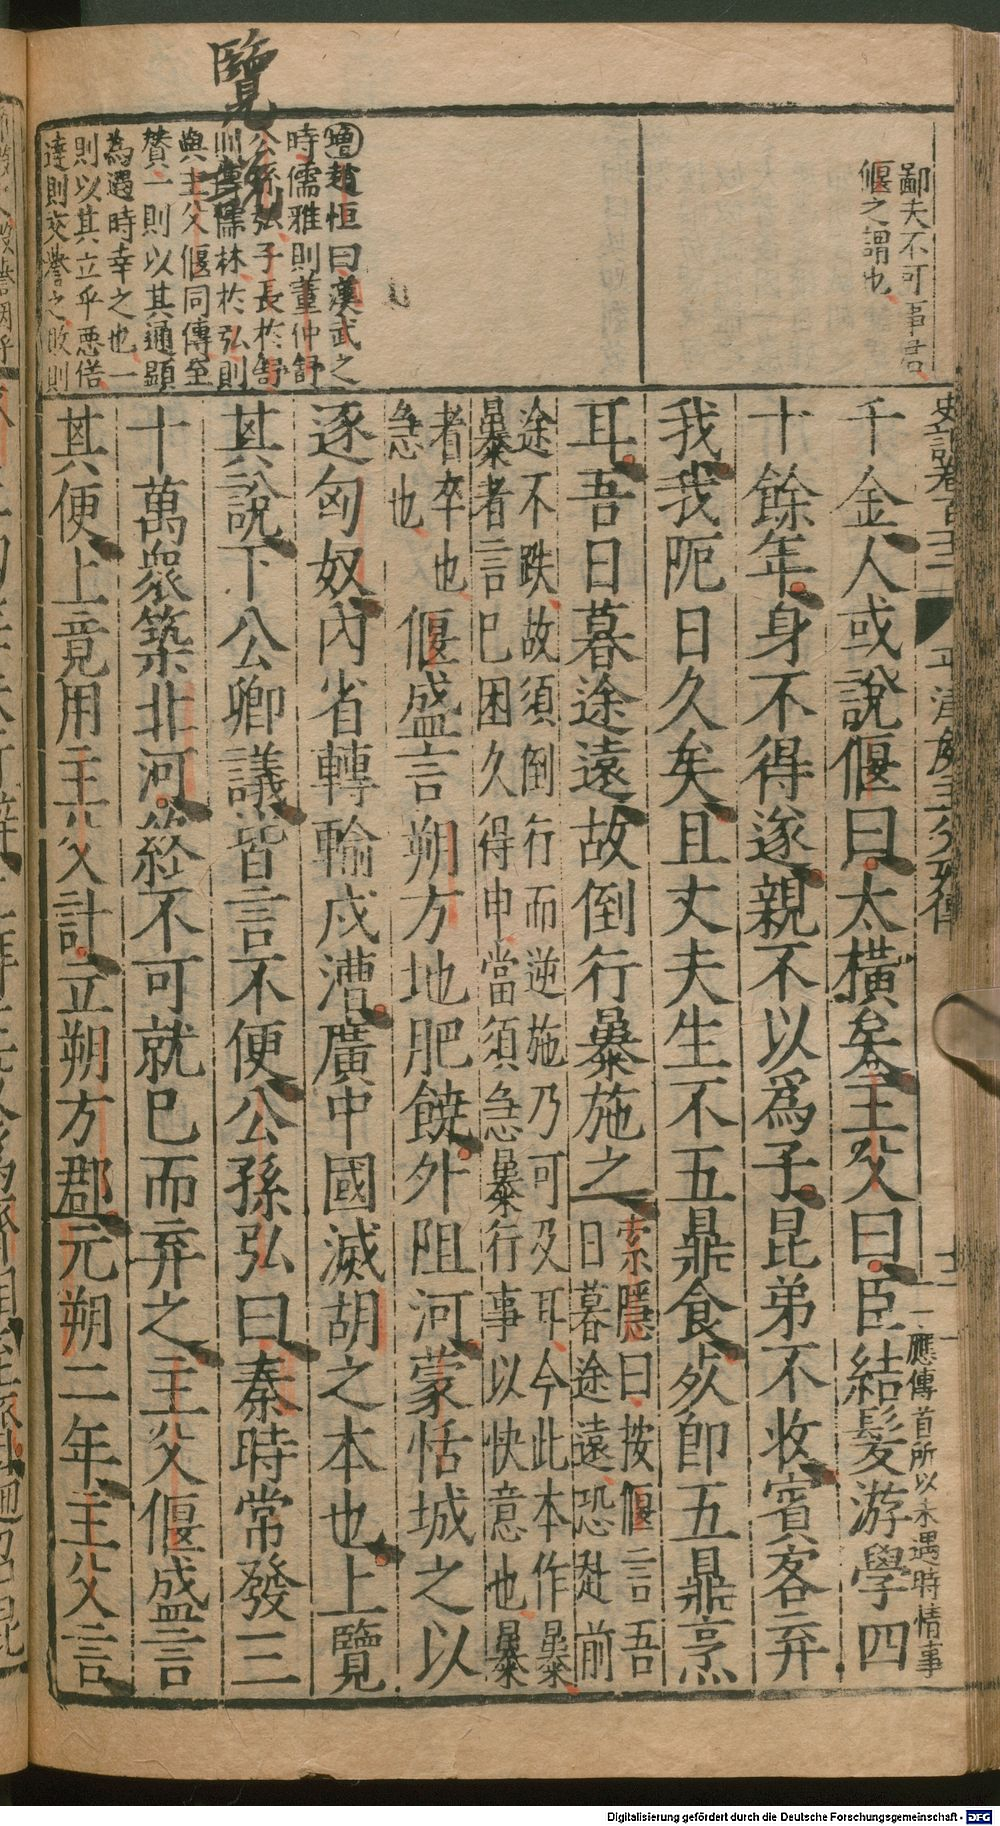 鄙夫不可事君
偃之謂也
增趙恒曰漢武之
時儒雅則董仲舒
公孫弘子長於舒
則傳儒林於弘則
與主父偃同傳至
賛一則以其通顯
為遇時幸之也一
則以其立乎惡偕
達則交譽之敗則
覽
史記卷百十二
平津侯主父列傳
十二
應傳首所以未遇時情事
千金人或說偃曰太橫矣主父曰臣結髮游學四
十餘年身不得遂親不以爲子昆弟不收賓客弃
我我阨日久矣且丈夫生不五鼎食死即五鼎烹
耳吾日暮途遠故倒行暴施之
索隱曰按偃言吾
日暮途遠恐赴前
途不跌故須倒行而逆施乃可及耳今此本作暴
暴者言已困久得申當須急暴行事以快意也暴
者卒也
急也
偃盛言朔方地肥饒外阻河蒙恬城之以
逐匈奴內省轉輸戍漕廣中國滅胡之本也上覽
其說下公卿議皆言不便公孫弘曰秦時常發三
十萬衆築北河終不可就已而弃之主父偃盛言
其便上竟用主父計立朔方郡元朔二年主父言
Digitalisierung gefördert durch die Deutsche Forschungsgemeinschaft - DFG